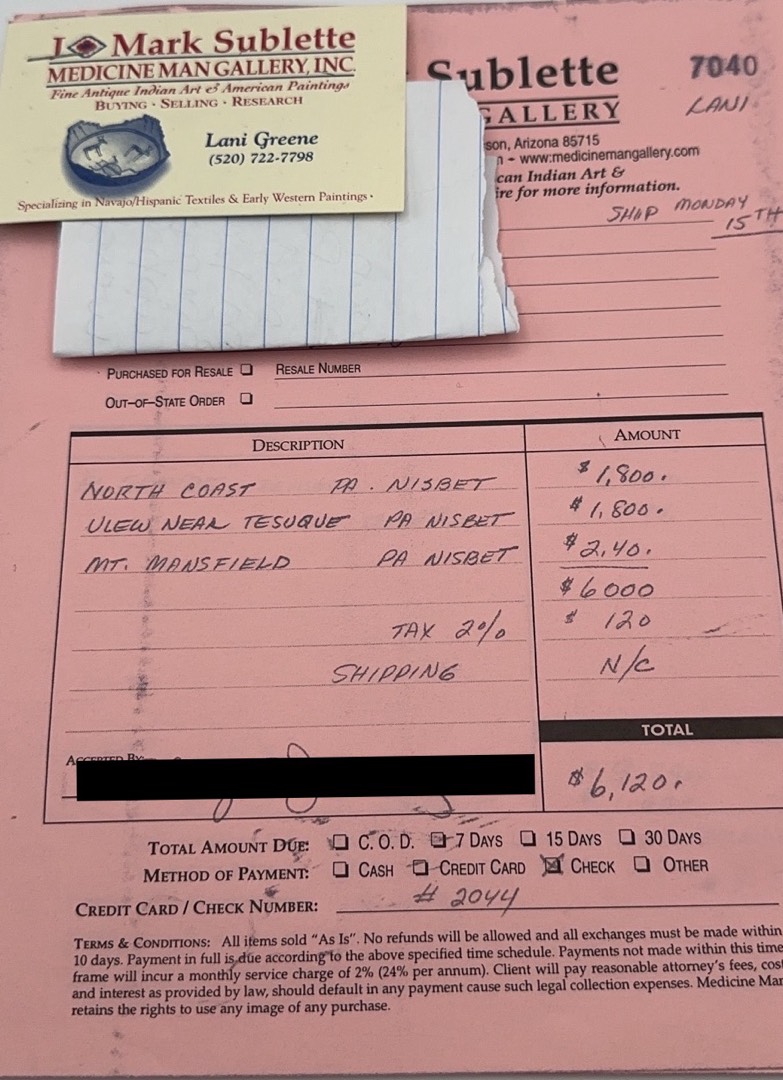 J Mark Sublette
MEDICINE MAN GALLERY, INC.
Fine Antique Indian Art & American Paintings
BUYING · SELLING · RESEARCH
Lani Greene
(520) 722-7798
Specializing in Navajo/Hispanic Textiles & Early Western Paintings ·
Sublette
GALLERY
7040
LANI
son, Arizona 85715
n - www.medicinemangallery.com
can Indian Art &
ire for more information.
SHIP MONDAY
15TH
PURCHASED FOR RESALE ☐ RESALE NUMBER
OUT-OF-STATE ORDER ☐
DESCRIPTION AMOUNT
NORTH COAST PA. NISBET $1,800.
VIEW NEAR TESUQUE PA NISBET $1,800.
MT. MANSFIELD PA NISBET $2,40.
$6000
TAX 2% $ 120
SHIPPING N/C
TOTAL
ACCEPTED BY
$6,120.
TOTAL AMOUNT DUE: ☐ C. O. D. ☐ 7 DAYS ☐ 15 DAYS ☐ 30 DAYS
METHOD OF PAYMENT: ☐ CASH ☐ CREDIT CARD ☒ CHECK ☐ OTHER
CREDIT CARD / CHECK NUMBER: # 2044
TERMS & CONDITIONS: All items sold "As Is". No refunds will be allowed and all exchanges must be made within
10 days. Payment in full is due according to the above specified time schedule. Payments not made within this time
frame will incur a monthly service charge of 2% (24% per annum). Client will pay reasonable attorney's fees, cost
and interest as provided by law, should default in any payment cause such legal collection expenses. Medicine Man
retains the rights to use any image of any purchase.